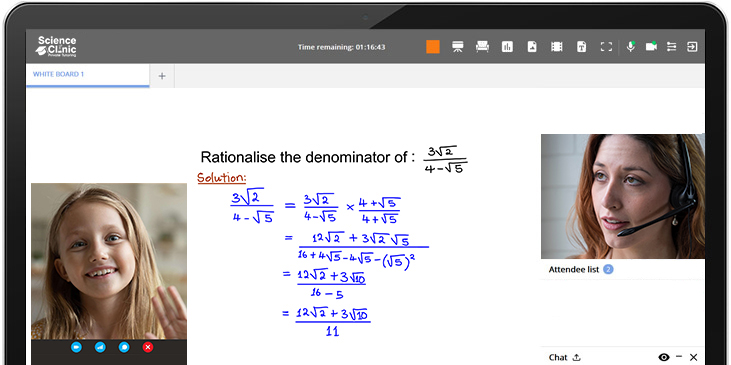 Science
Clinic
Private Tutoring
Time remaining: 01:16:43
WHITE BOARD 1
+
Rationalise the denominator of : 3√2 / 4-√5
Solution:
3√2 / 4-√5 = 3√2 / 4-√5 × 4+√5 / 4+√5
= 12√2 + 3√2 √5 / 16+4√5-4√5-(√5)²
= 12√2+3√10 / 16-5
= 12√2+3√10 / 11
Attendee list 2
Chat